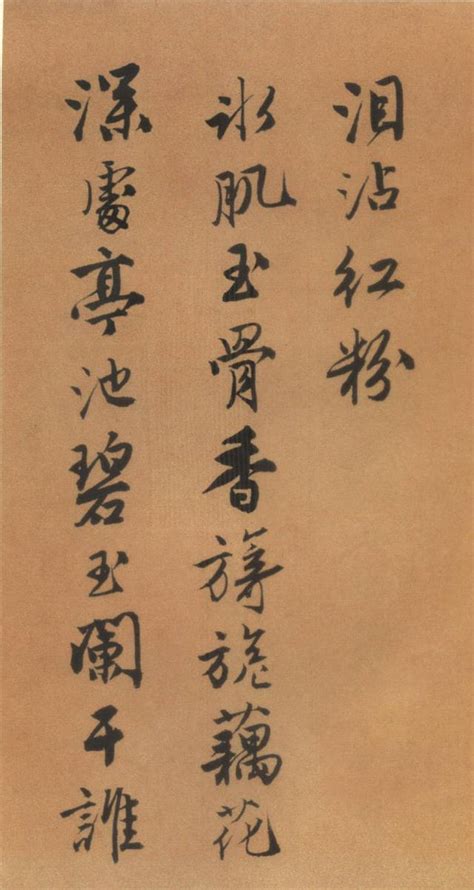 泪沾紅粉
冰肌玉骨香旖旎藕花
深處亭池碧玉闌干誰